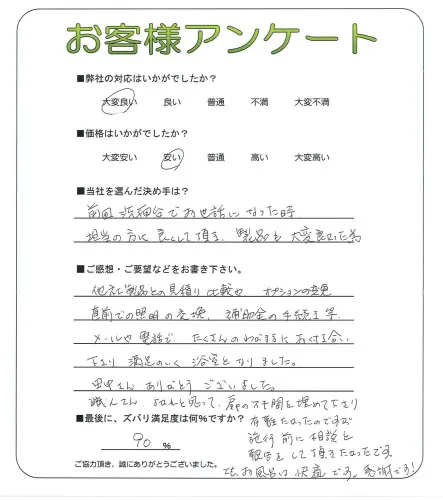 お客様アンケート
■弊社の対応はいかがでしたか？
大変良い 良い 普通 不満 大変不満
■価格はいかがでしたか？
大変安い 安い 普通 高い 大変高い
■当社を選んだ決め手は？
前回 洗面台でお世話になった時
担当の方に良くして頂き、製品も大変良かった為
■ご感想・ご要望などをお書き下さい。
他社製品との見積り比較や、オプションの変更
直前での照明の交換、補助金の手続き等
メールや電話で、たくさんのわがままにおつき合い
下さり 満足のいく 浴室となりました。
田中さん ありがとうございました。
職人さん、よかれと思って、扉の下の隙間を埋めて下さり
■最後に、ズバリ満足度は何％ですか？
有難たかったのですが
施行前に相談と
報告をして頂きたかったです。
90 ％
でも、お風呂は快適です。感謝です！
ご協力頂き、誠にありがとうございました。